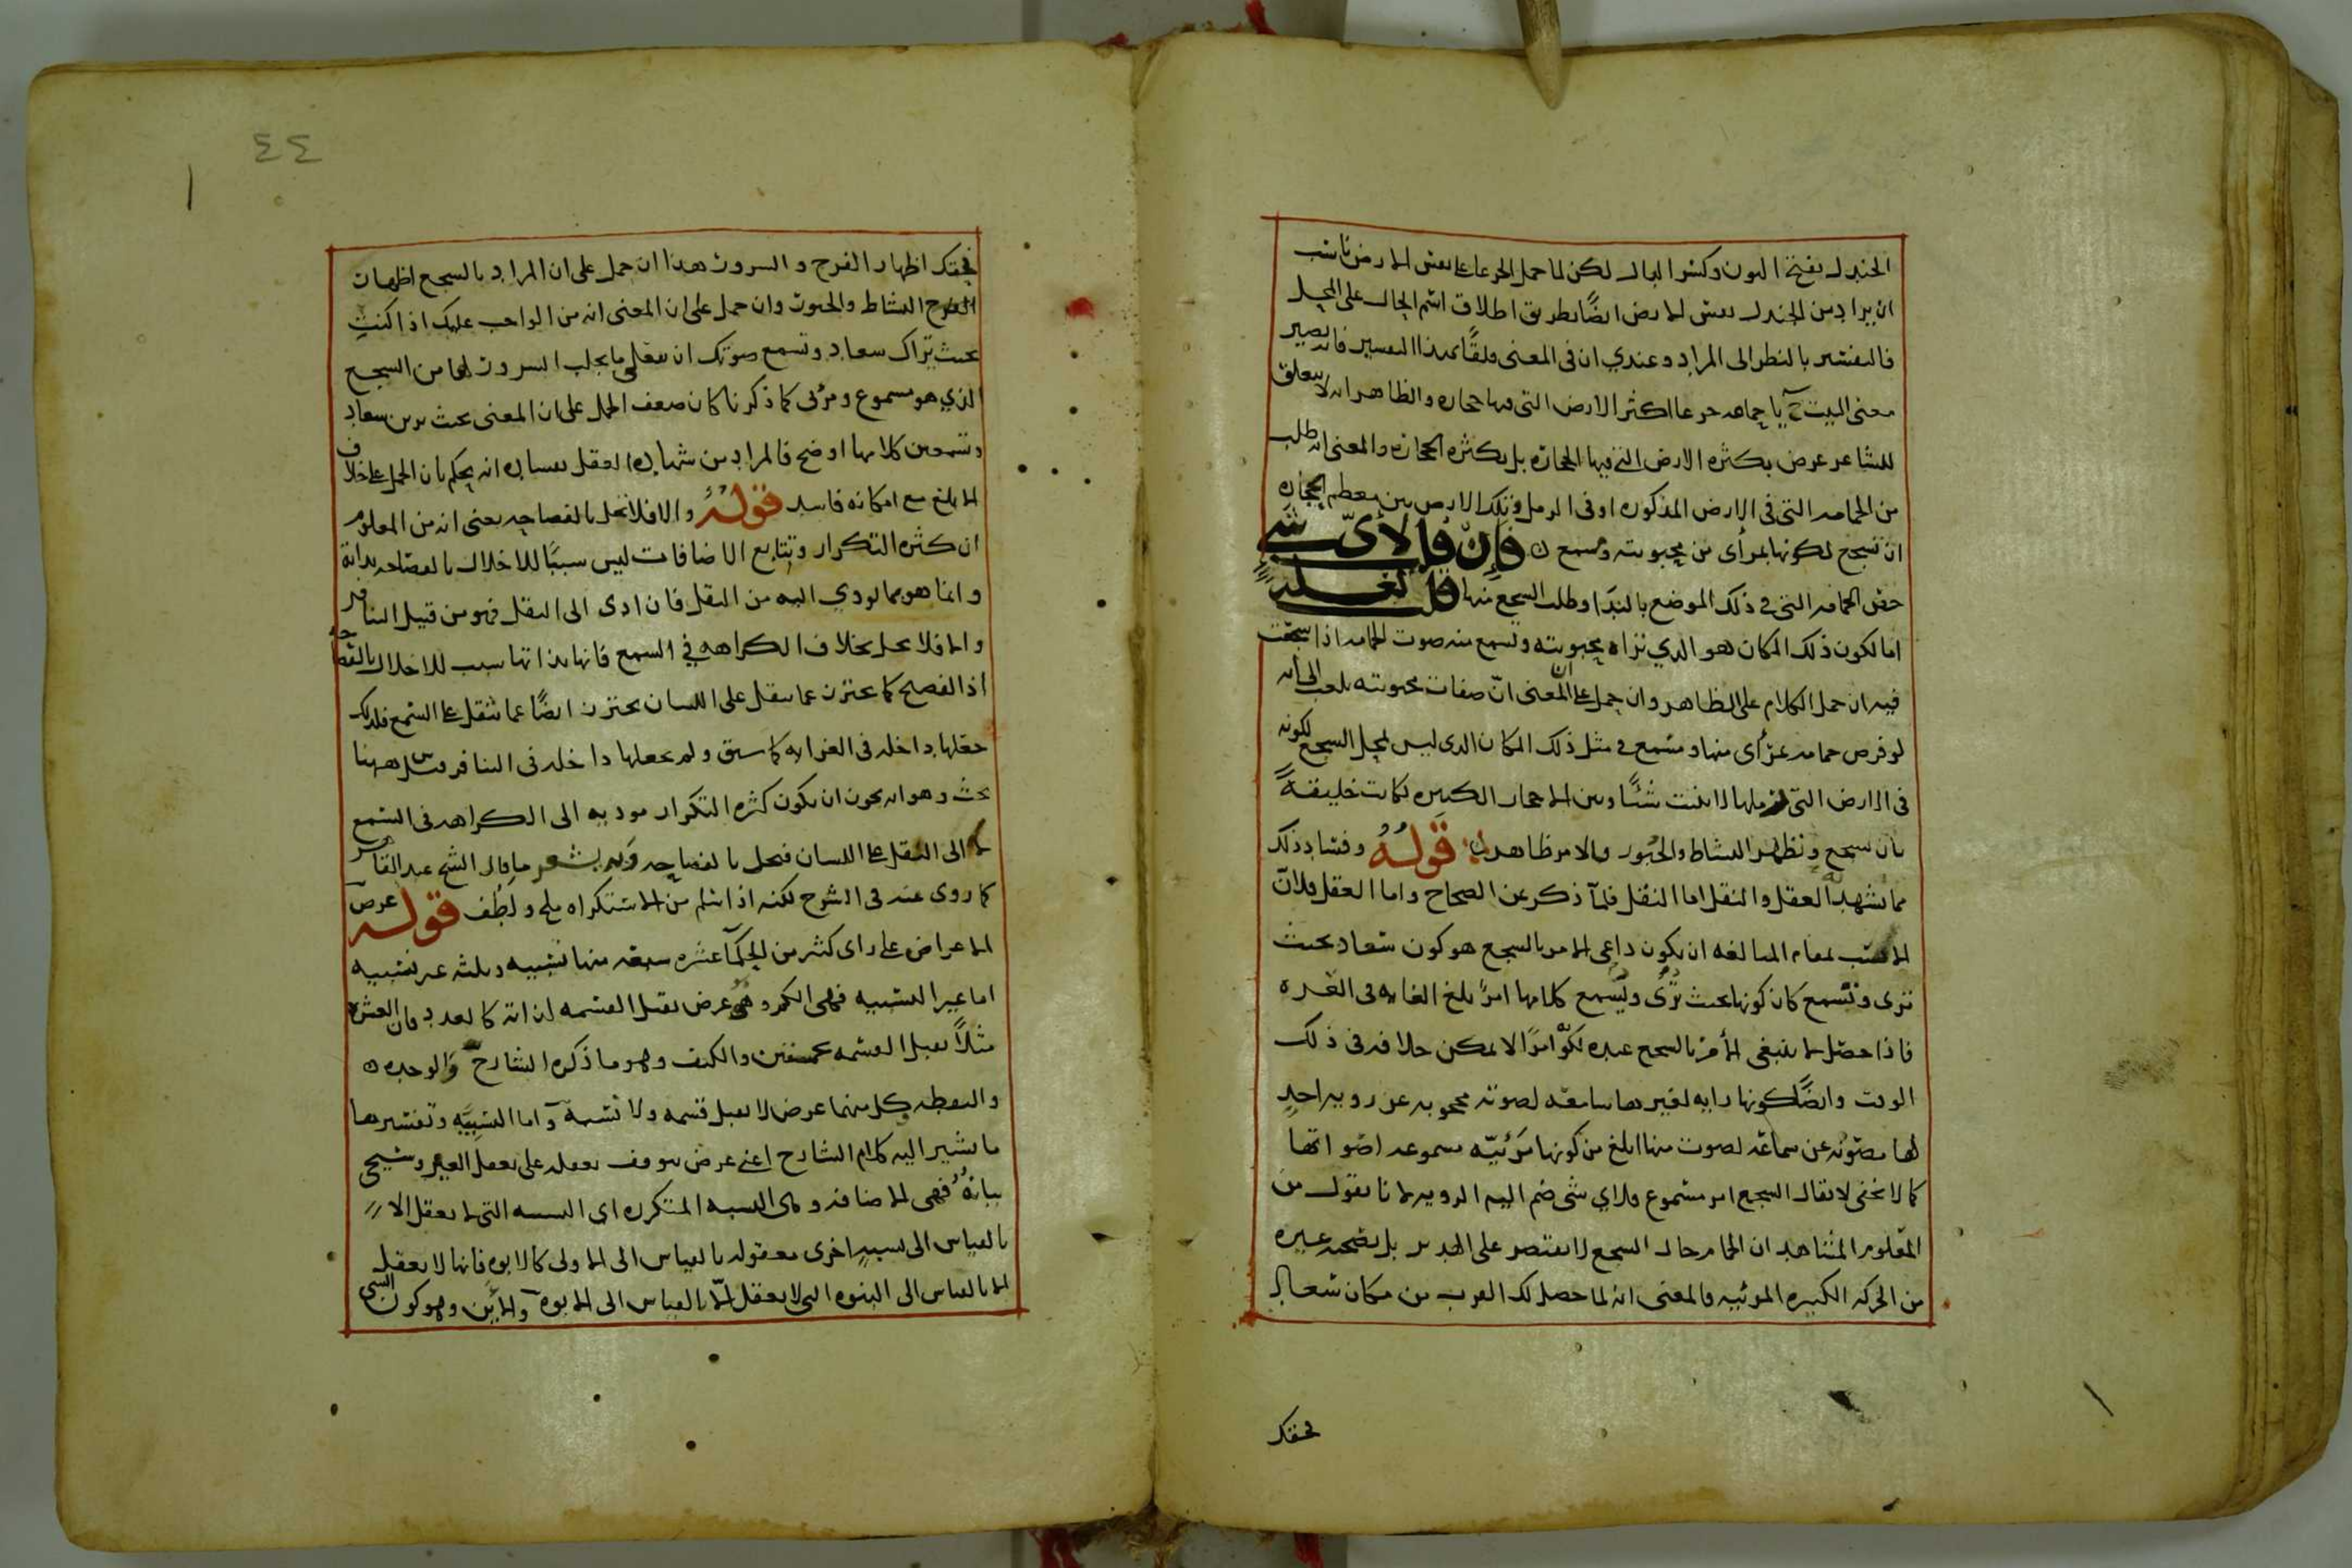 الجندل بفتح النون وكسر الدال لكن لما حمل الجرعاء على بعض الارض ناسب
ان يراد من الجندل بعض الارض ايضًا بطريق اطلاق اسم الحال على المحل
فالتفسير بالنظر الى المراد وعندي ان في المعنى قلقًا بهذا التفسير فانه يصير
معنى البيت ح يا حمامه جرعا اكثر الارض التي فيها حجاره والظاهر انه لا يتعلق
للشاعر غرض بكثره الارض التي فيها الحجاره بل بكثره الحجاره والمعنى انه طلب
من الحمامه التي في الارض المذكوره او في الرمل وتلك الارض بين معظم الحجاره
ان تسجع لكونها بمرأى من محبوبته ومسمع ن فان قلت لاي شي
خص الحمامه التي في ذلك الموضع بالندا وطلب السجع منها قلت
اما لكون ذلك المكان هو الذي تراه محبوبته وتسمع منه صوت الحمامه اذا سجعت
فيه ان حمل الكلام على الظاهر وان حمل على ان المعنى انّ صفات محبوبته بلغت الى انه
لو فرض حمامه بمرأى منها ومسمع في مثل ذلك المكان الذي ليس بمحل السجع لكونه
في الارض التي رملها لا ينبت شئًا وبين الاحجار الكبيره لكانت خليقةً
بان تسجع وتظهر النشاط والحبور والامر ظاهر ن قوله وفساد ذلك
مما يشهد به العقل والنقل اما النقل فلما ذكر عن الصحاح واما العقل فلانّ
الانسب بمقام المبالغه ان يكون داعى الامر بالسجع هو كون سعاد بحيث
ترى وتسمع كان كونها بحيث تُرى ويُسمع كلامها امرًا بلغ الغايه فى الندره
فاذا حصل لا ينبغى الأمر بالسجع عنده لكونه امرًا لا يمكن خلافه فى ذلك
الوقت وايضًا كونها رايه لغيرها سامعه لصوته محجوبه عن رويه احدٍ
لها مصونه عن سماعه لصوت منها ابلغ من كونها مرئيّه مسموعه اصواتها
كما لا يخفى لا يقال السجع امر مسموع فلاي شى ضم اليه الرويه لانا نقول من
المعلوم المشاهد ان الحمام حال السجع لا يقتصر على الهدير بل يصحبه غيره
من الحركه الكبيره المرئيه فالمعنى انه لما حصل لك القرب من مكان سعاد
فحقك
٤٤
فحقك اظهار الفرح والسرور هذا ان حمل على ان المراد بالسجع اظهار
الفرح النشاط والحبور وان حمل على ان المعنى انه من الواجب عليك اذا كنتِ
بحيث تراك سعاد وتسمع صوتك ان تفعلي ما يجلب السرور لها من السجع
الذي هو مسموع ومرئى كما ذكرنا كان ضعف الحمل على ان المعنى بحيث ترين سعاد
وتسمعين كلامها اوضح فالمراد من شهاده العقل بفساده انه يحكم بان الحمل على خلاف
الابلغ مع امكانه فاسد قوله والا فلا تخل بالفصاحه يعنى انه من المعلوم
ان كثره التكرار وتتابع الاضافات ليس سببًا للاخلال بالفصاحه بذاته
وانما هو بما يودي اليه من الثقل فان ادى الى الثقل فهو من قبيل التنافر
والا فلا يخل بخلاف الكراهه في السمع فانها بذاتها سبب للاخلال بالفصاحه
اذ الفصيح كما يحترز عما يثقل على اللسان يحترز ايضًا عما يثقل على السمع فلذلك
جعلها داخله فى الغرابه كما سبق ولم يجعلها داخله فى التنافر وهاهنا
بحث وهو انه يجوز ان يكون كثره التكرار موديه الى الكراهه فى السمع
لا الى الثقل على اللسان فيخل بالفصاحه وبه يشعر ما قال الشيخ عبد القاهر
كما روى عنه فى الشرح لكنه اذا سلم من الاستكراه ملح ولطُف قوله عرض
الاعراض على راى كثير من الحكما عشره سبعه منها نسبيه وثلثه غير نسبيه
اما غير النسبيه فهى الكم وهو عرض يقبل القسمه لذاته كالعدد فان العشره
مثلاً يقبل القسمه بخمستين والكيف وهو ما ذكره الشارح والوحده ن
والنقطه وكل منهما عرض لا يقبل قسمه ولا نسبة واما النسبيّه وتفسيرها
ما يشير اليه كلام الشارح اعنى عرض يتوقف تعقله على تعقل الغير وسيجى
بيانه فهى الاضافه وهى النسبه المتكرره اى النسبه التى لا يعقل الا
بالقياس الى نسبهٍ اخرى معقوله بالقياس الى الاولى كالابوه فانها لا يعقل
الا بالقياس الى البنوه التى لا يعقل الّا بالقياس الى الابوه والاين وهو كون الشى